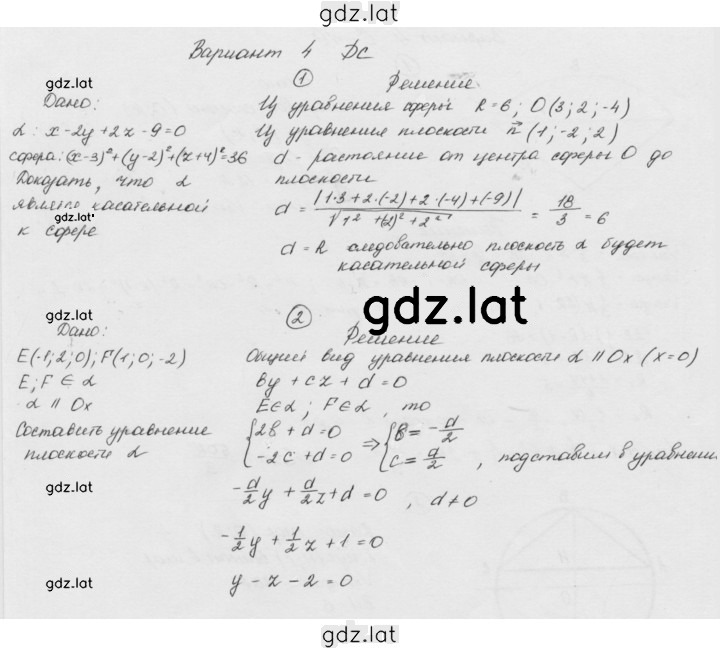 gdz.lat
Вариант 4 ДС
gdz.lat
① Решение
Дано:
α: x-2y+2z-9=0
сфера: (x-3)²+(y-2)²+(z+4)²=36
Доказать, что α
является касательной
к сфере
gdz.lat
Из уравнения сферы R=6; O(3; 2; -4)
Из уравнения плоскости n⃗(1; -2; 2)
d - растояние от центра сферы O до
плоскости
d = |1·3+2·(-2)+2·(-4)+(-9)| / √1²+(2)²+2² = 18/3 = 6
d = R следовательно плоскость α будет
касательной сферы
gdz.lat
gdz.lat
② Решение
Дано:
E(-1; 2; 0); F(1; 0; -2)
E; F ∈ α
α || Ox
Составить уравнение
плоскости α
gdz.lat
Общий вид уравнения плоскости α || Ox (x=0)
by + cz + d = 0
E∈α; F∈α, то
{2b + d = 0
-2c + d = 0 ⇒ {b = -d/2
c = d/2, подставим в уравнени
-d/2y + d/2z + d = 0, d≠0
-1/2y + 1/2z + 1 = 0
y - z - 2 = 0
gdz.lat
gdz.lat